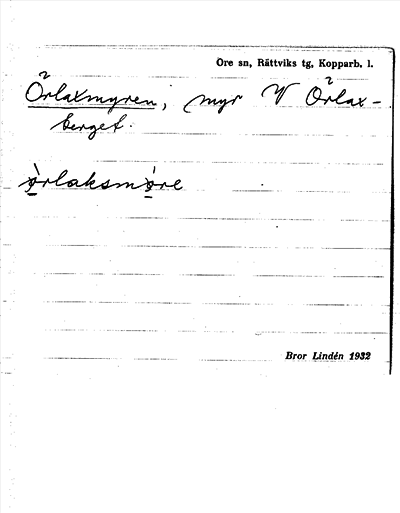 Ore sn, Rättviks tg, Kopparb. l.
Örlaxmyren, myr V Örlax-
berget.
ørlaksmøre
Bror Lindén 1932